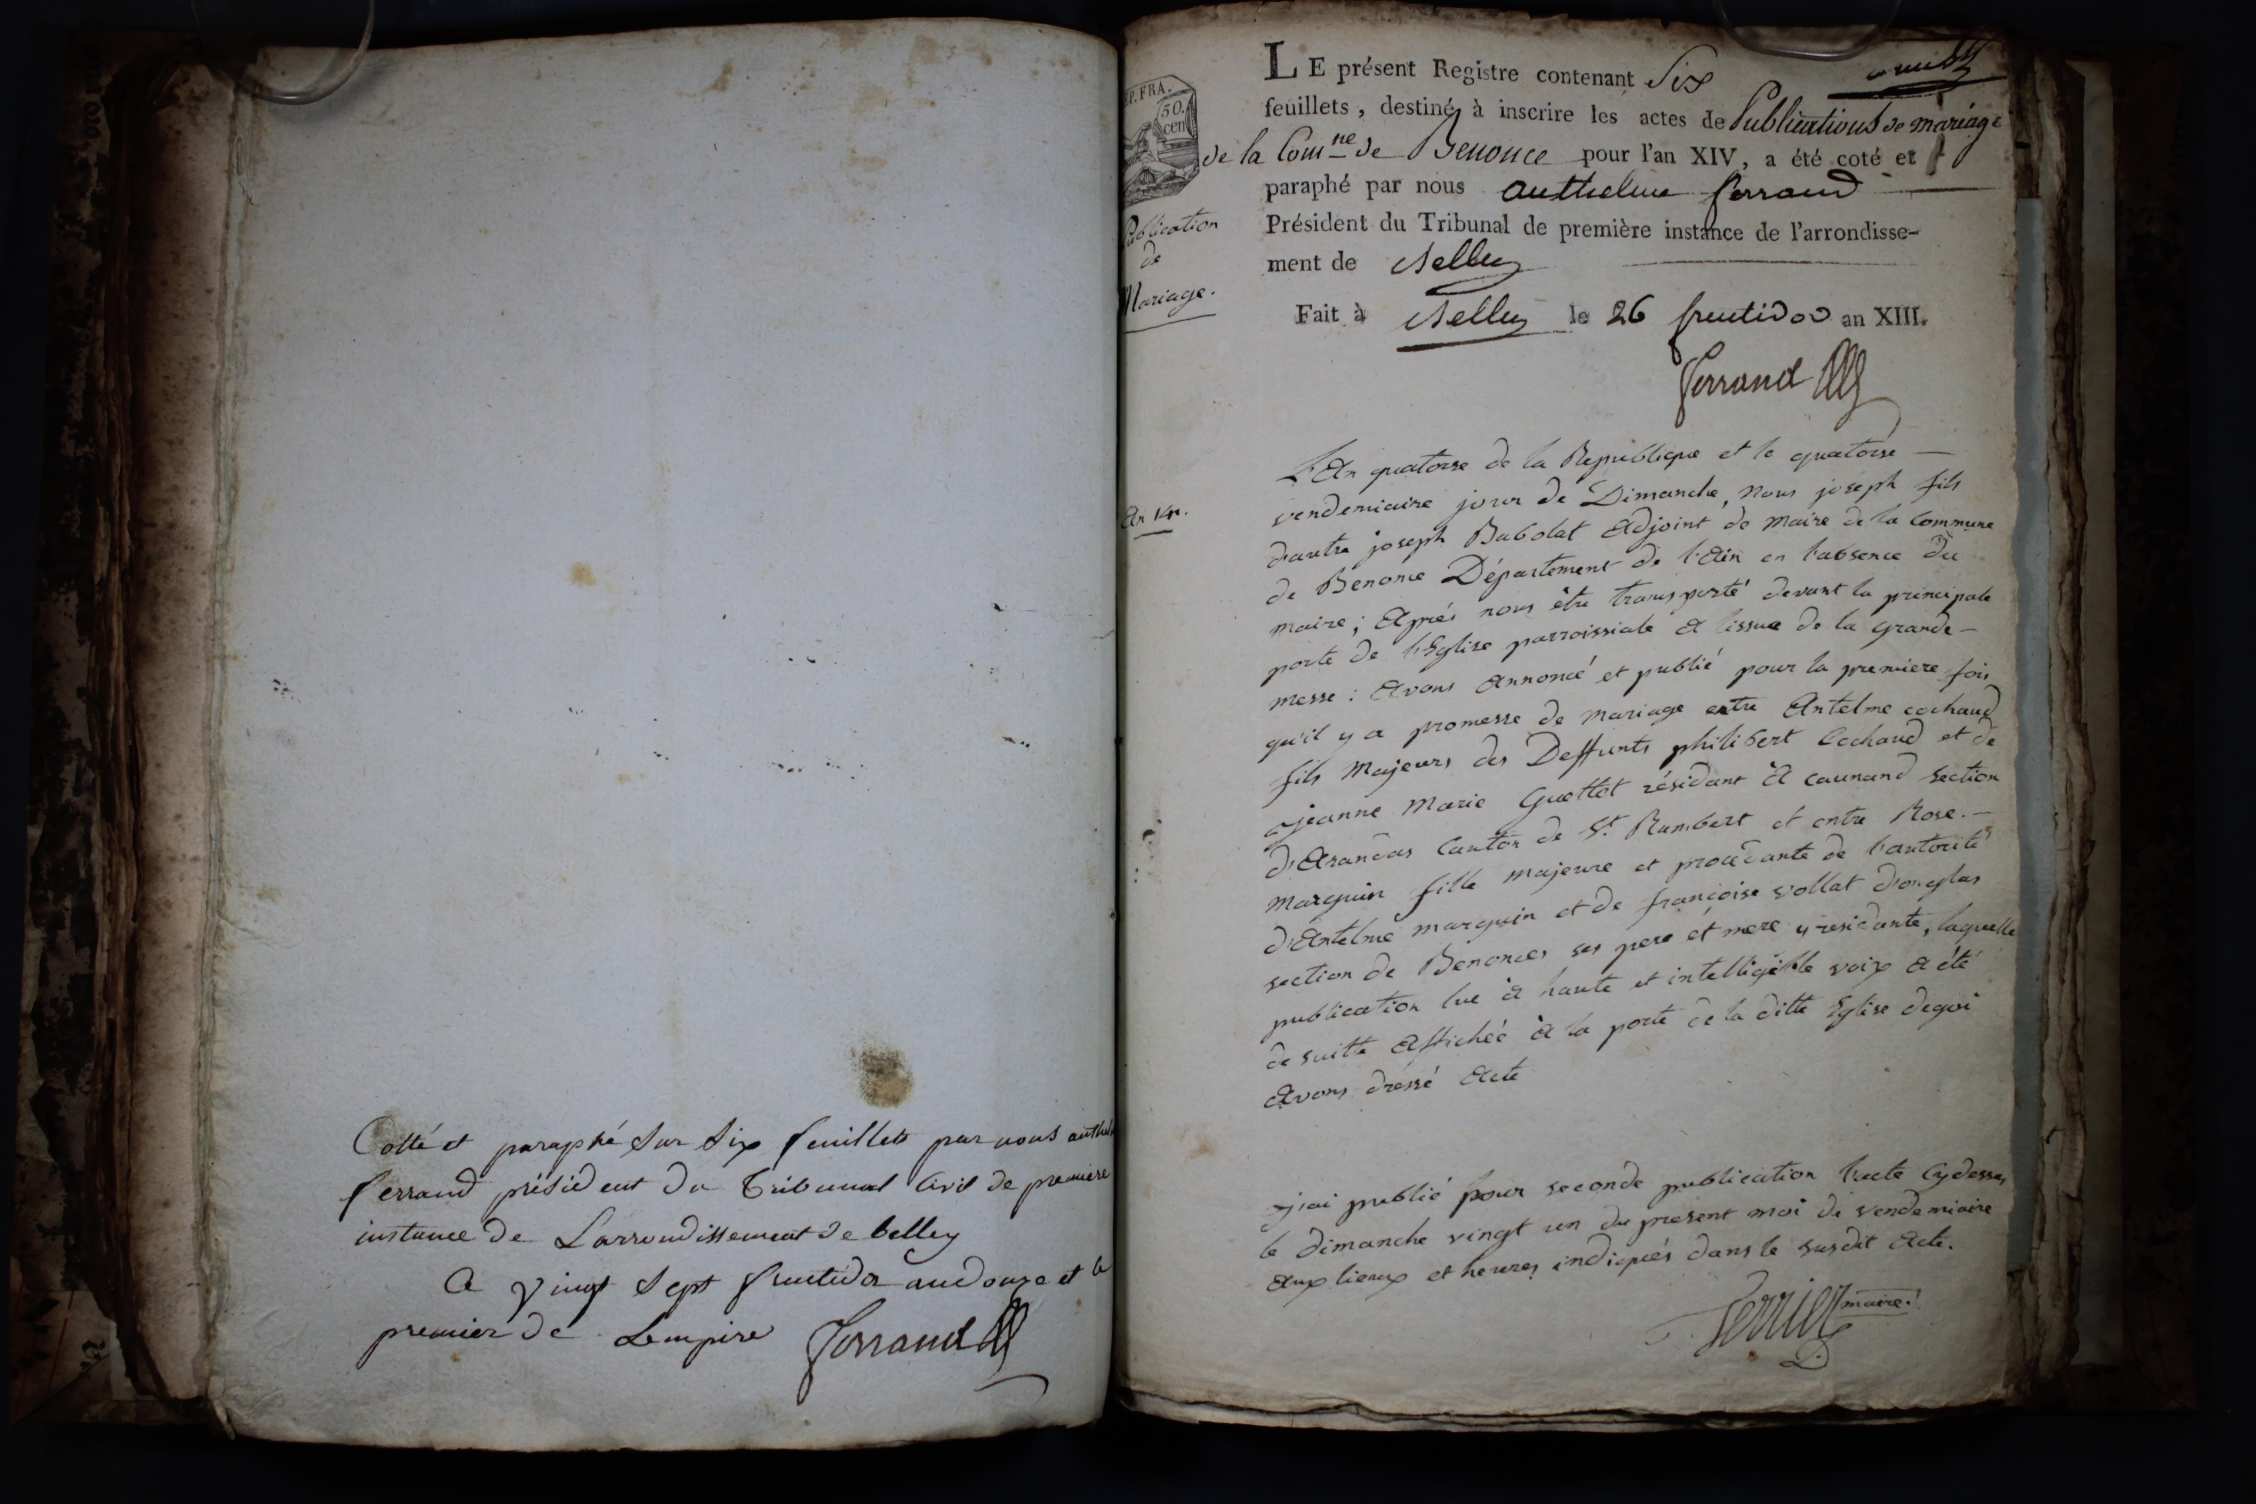 Cotté et paraphé sur six feuillets par nous anthel
ferrand président du tribunal civil de première
instance de L'arrondissement de belley
a vingt sept fructidor an douze et le
premier de Lempire Ferrand
P. FRA.
50.
cen
LE présent Registre contenant Six
feuillets, destiné à inscrire les actes de Publications de mariage
de la Comne de Benonce pour l'an XIV, a été coté et
paraphé par nous anthelme ferrand
Président du Tribunal de première instance de l'arrondisse-
ment de Belley
Fait à Belley le 26 fructidor an XIII.
Ferrand
Publication
de
Mariage.
An 14.
L'An quatorse de la Republique et le quatorse
vendemiaire jour de Dimanche, nous joseph fils
d'autre joseph Babolat Adjoint de maire de la Commune
de Benonce Département de l'Ain en l'absence du
maire; Aprés nous être transporté devant la principale
porte de l'Eglise parroissiale a lissue de la grande
messe: Avons Annoncé et publié pour la premiere fois
qu'il y a promesse de mariage entre Antelme cochaud
fils majeurs des Deffunts philibert Cochaud et de
jeanne Marie Guettet résidant à caunand section
d'Arandas Canton de St. Rambert et entre Rose
marguin fille majeure et procédante de l'autorité
d'Antelme marguin et de françoise vollat d'onglas
section de Benonces ses pere et mere y residante, laquelle
publication lue à haute et intelligible voix a été
de suitte Affichée à la porte de la ditte Eglise dequoi
Avons dréssé Acte
j'ai publié pour seconde publication l'acte Cydessus
le dimanche vingt un du present moi de vendemiaire
aux lieux et heures indiqués dans le susdit Acte.
Perrier maire.